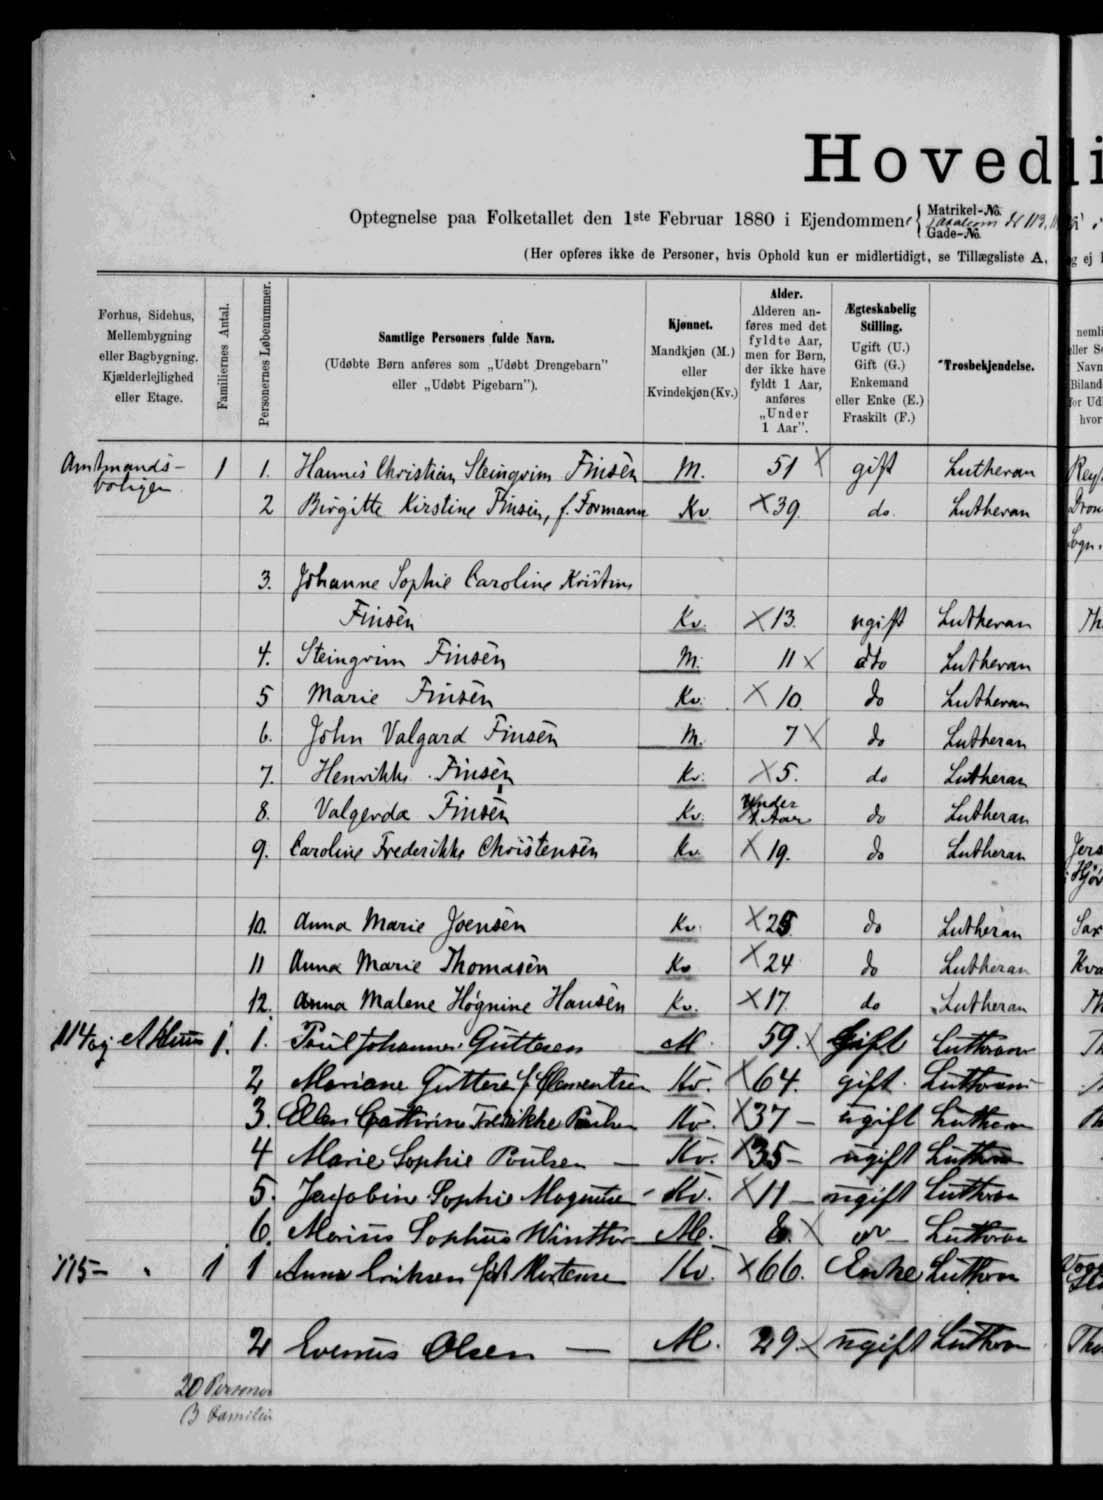 Hovedli
Optegnelse paa Folketallet den 1ste Februar 1880 i Ejendommen { Matrikel-No. Gade-No.
(Her opføres ikke de Personer, hvis Ophold kun er midlertidigt, se Tillægsliste A,
Forhus, Sidehus, Mellembygning eller Bagbygning. Kjælderlejlighed eller Etage.
Familiernes Antal.
Personernes Løbenummer.
Samtlige Personers fulde Navn.
(Udøbte Børn anføres som „Udøbt Drengebarn"
eller „Udøbt Pigebarn").
Kjønnet.
Mandkjøn (M.)
eller
Kvindekjøn (Kv.)
Alder.
Alderen an-
føres med det
fyldte Aar,
men for Børn,
der ikke have
fyldt 1 Aar,
anføres
„Under
1 Aar".
Ægteskabelig
Stilling.
Ugift (U.)
Gift (G.)
Enkemand
eller Enke (E.)
Fraskilt (F.)
Trosbekjendelse.
Amtmands-
boligen 1 1. Hannes Christian Steingrim Finsen M. 51 gift Lutheran
2 Birgitte Kirstine Finsen, f. Formann Kv 39 do. Lutheran
3. Johanne Sophie Caroline Kristine
Finsen Kv. 13. ugift Lutheran
4. Steingrim Finsen M. 11 dto Lutheran
5 Marie Finsen Kv. 10 do Lutheran
6. John Valgard Finsen M. 7 do Lutheran
7. Henrikke Finsen Kv. 5. do Lutheran
8. Valgerda Finsen Kv. Under 1 Aar do Lutheran
9. Caroline Frederikke Christensen Kv 19. do Lutheran
10. Anna Marie Joensen Kv. 25 do Lutheran
11 Anna Marie Thomasen Kv 24 do Lutheran
12. Anna Malene Høgnine Hansen Kv. 17. do Lutheran
114 1. 1. Poul Johannes Guttesen M. 59. Gift Lutheran
2 Mariane Guttesen f. Clementsen Kv. 64. gift Lutheran
3. Ellen Cathrine Fredrikke Poulsen Kv. 37 - ugift Lutheran
4 Marie Sophie Poulsen - Kv. 35 - ugift Lutheran
5. Jacobine Sophie Kv. 11 - ugift Lutheran
6. Marius Sophus Winther M. Lutheran
115 - " 1 1 Anna Eriksen født Mortensen Kv. 66. Enke Lutheran
2 Evenus Olsen - M. 29 ugift Lutheran
20 Personer
3 Familier